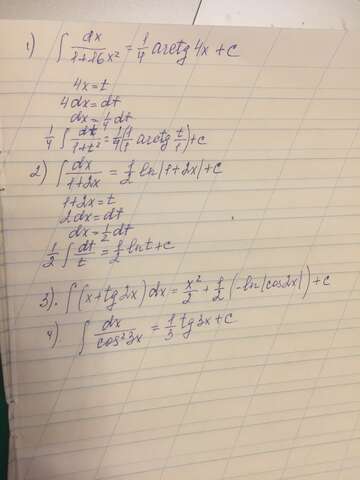 1) ∫ dx/(1+16x²) = 1/4 arctg 4x + c
4x = t
4dx = dt
dx = 1/4 dt
1/4 ∫ dt/(1+t²) = 1/4 (1/1 arctg t/1) + c
2) ∫ dx/(1+2x) = 1/2 ln|1+2x| + c
1+2x = t
2dx = dt
dx = 1/2 dt
1/2 ∫ dt/t = 1/2 ln t + c
3). ∫ (x + tg 2x) dx = x²/2 + 1/2 (-ln|cos2x|) + c
4). ∫ dx/cos²3x = 1/3 tg 3x + c